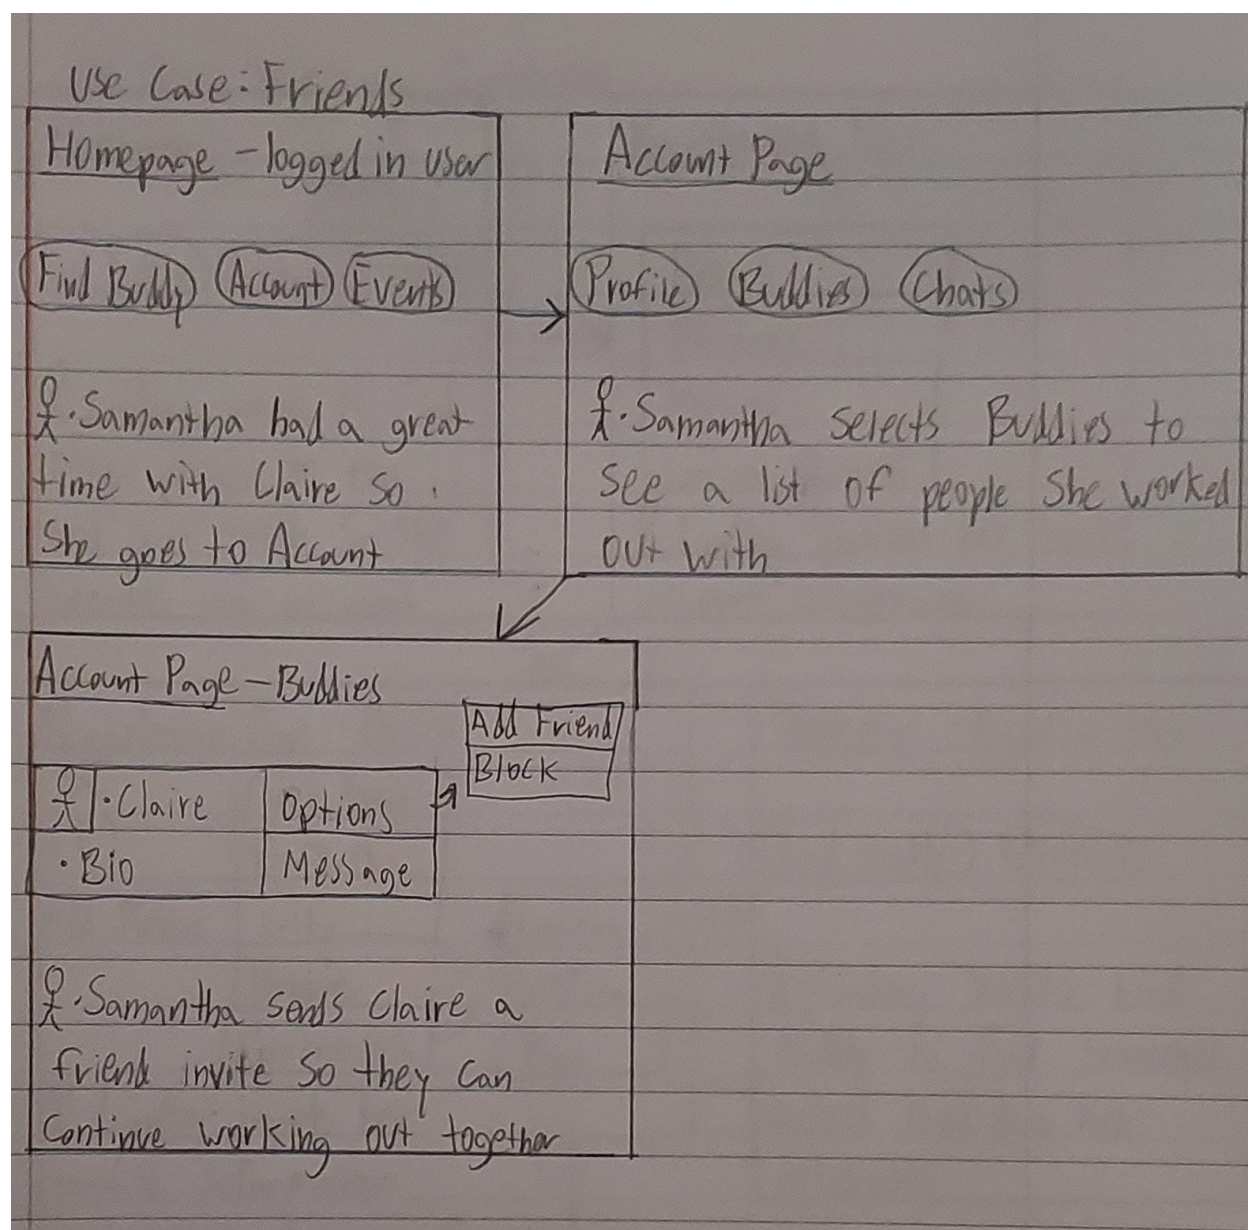 Use Case: Friends
Homepage - logged in user
Find Buddy Account Events
• Samantha had a great
time with Claire so
She goes to Account
Account Page
Profile Buddies Chats
• Samantha selects Buddies to
see a list of people she worked
out with
Account Page - Buddies
Add Friend
Block
• Claire Options
• Bio Message
• Samantha sends Claire a
friend invite so they can
Continue working out together